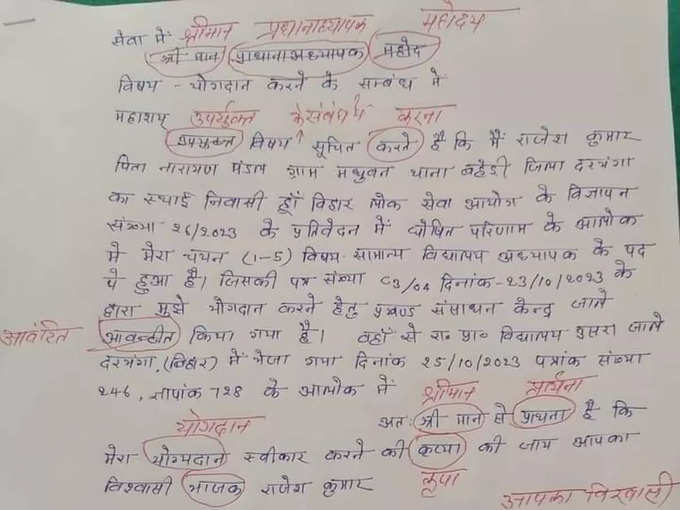 श्रीमान प्रधानाध्यापक महोदय
सेवा में
श्री मान प्राधानाअध्यापक महोद
विषय - योगदान करने के सम्बंध में
महाशय् उपर्युक्त के संबंध में करना
उपऋक्त विषय सूचित करने है कि मैं राजेश कुमार
पिता नारायण मंडल ग्राम मधुवन थाना बहेड़ी जिला दरभंगा
का स्थाई निवासी हूँ बिहार लोक सेवा आयोग के विज्ञापन
संख्या 26/2023 के प्रतिवेदन में घोषित परिणाम के आलोक
में मेरा चयन (1-5) विषय- सामान्य विद्यालय अध्यापक के पद
पे हुआ है। जिसकी पत्र संख्या 03/04 दिनांक-23/10/2023 के
द्वारा मुझे योगदान करने हेतु प्रखण्ड संसाधन केन्द्र जाले
आवंटित आवन्टीत किया गया है। वहाँ से रा० प्रा० विद्यालय दुसरा जाले
दरभंगा, (बिहार) में भेजा गया दिनांक 25/10/2023 पत्रांक संख्या
246, ज्ञापांक 728 के आलोक में
श्रीमान प्रार्थना
अतः श्री मान से प्राथना है कि
योगदान
मेरा योग्यदान स्वीकार करने की कृप्या की जाय आपका
कृपा
विश्वासी भाजक राजेश कुमार
आपका विश्वासी